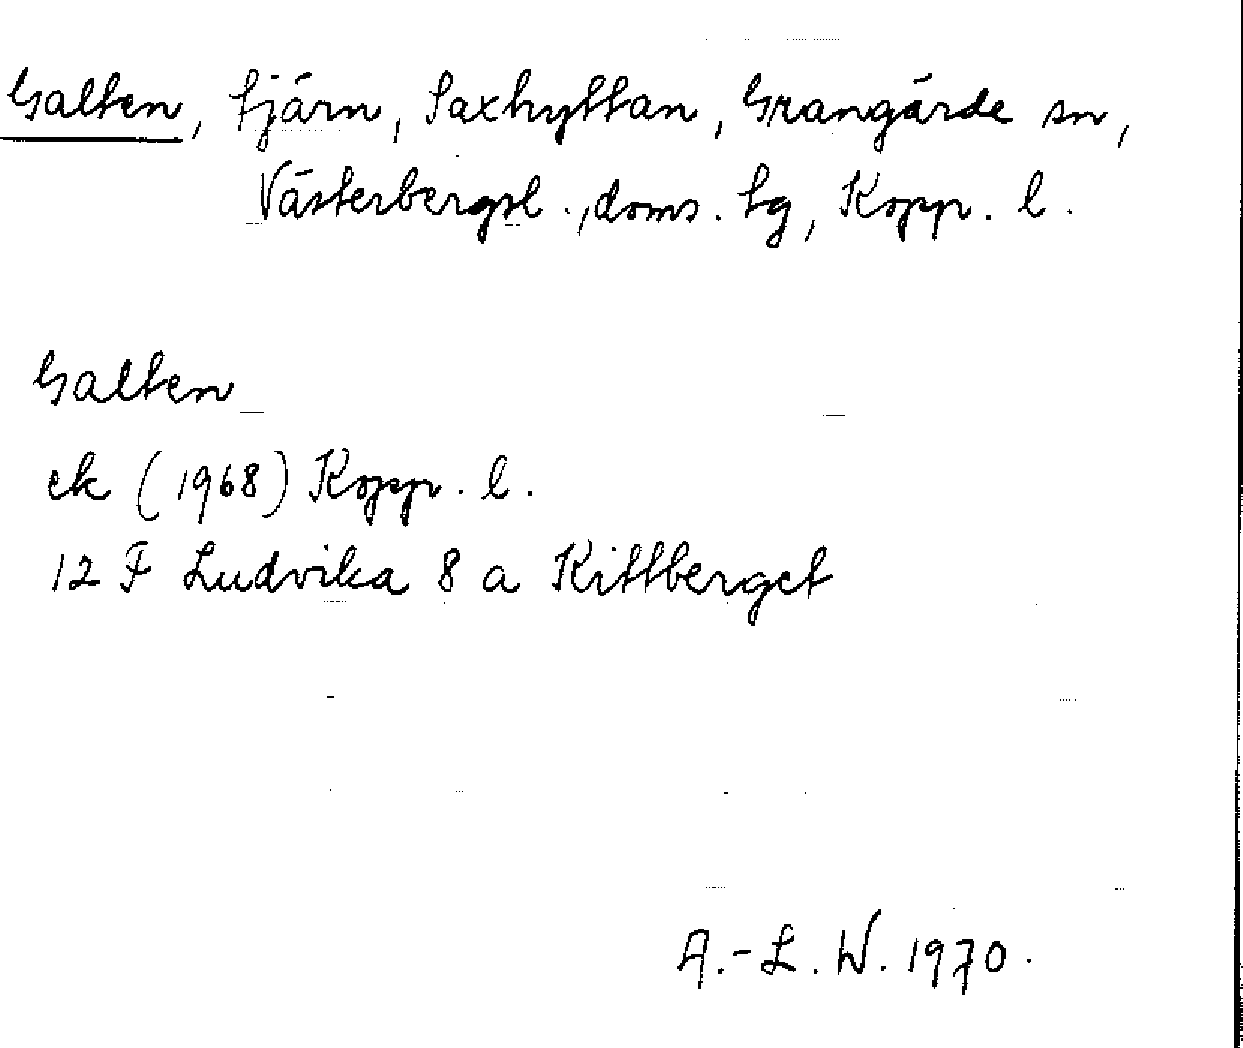 Galten, tjärn, Saxhyttan, Grangärde sn,
Västerbergsl., doms. tg, Kopp. l.
Galten
ek (1968) Kopp. l.
12 F Ludvika 8 a Kittberget
A.-L. W. 1970.